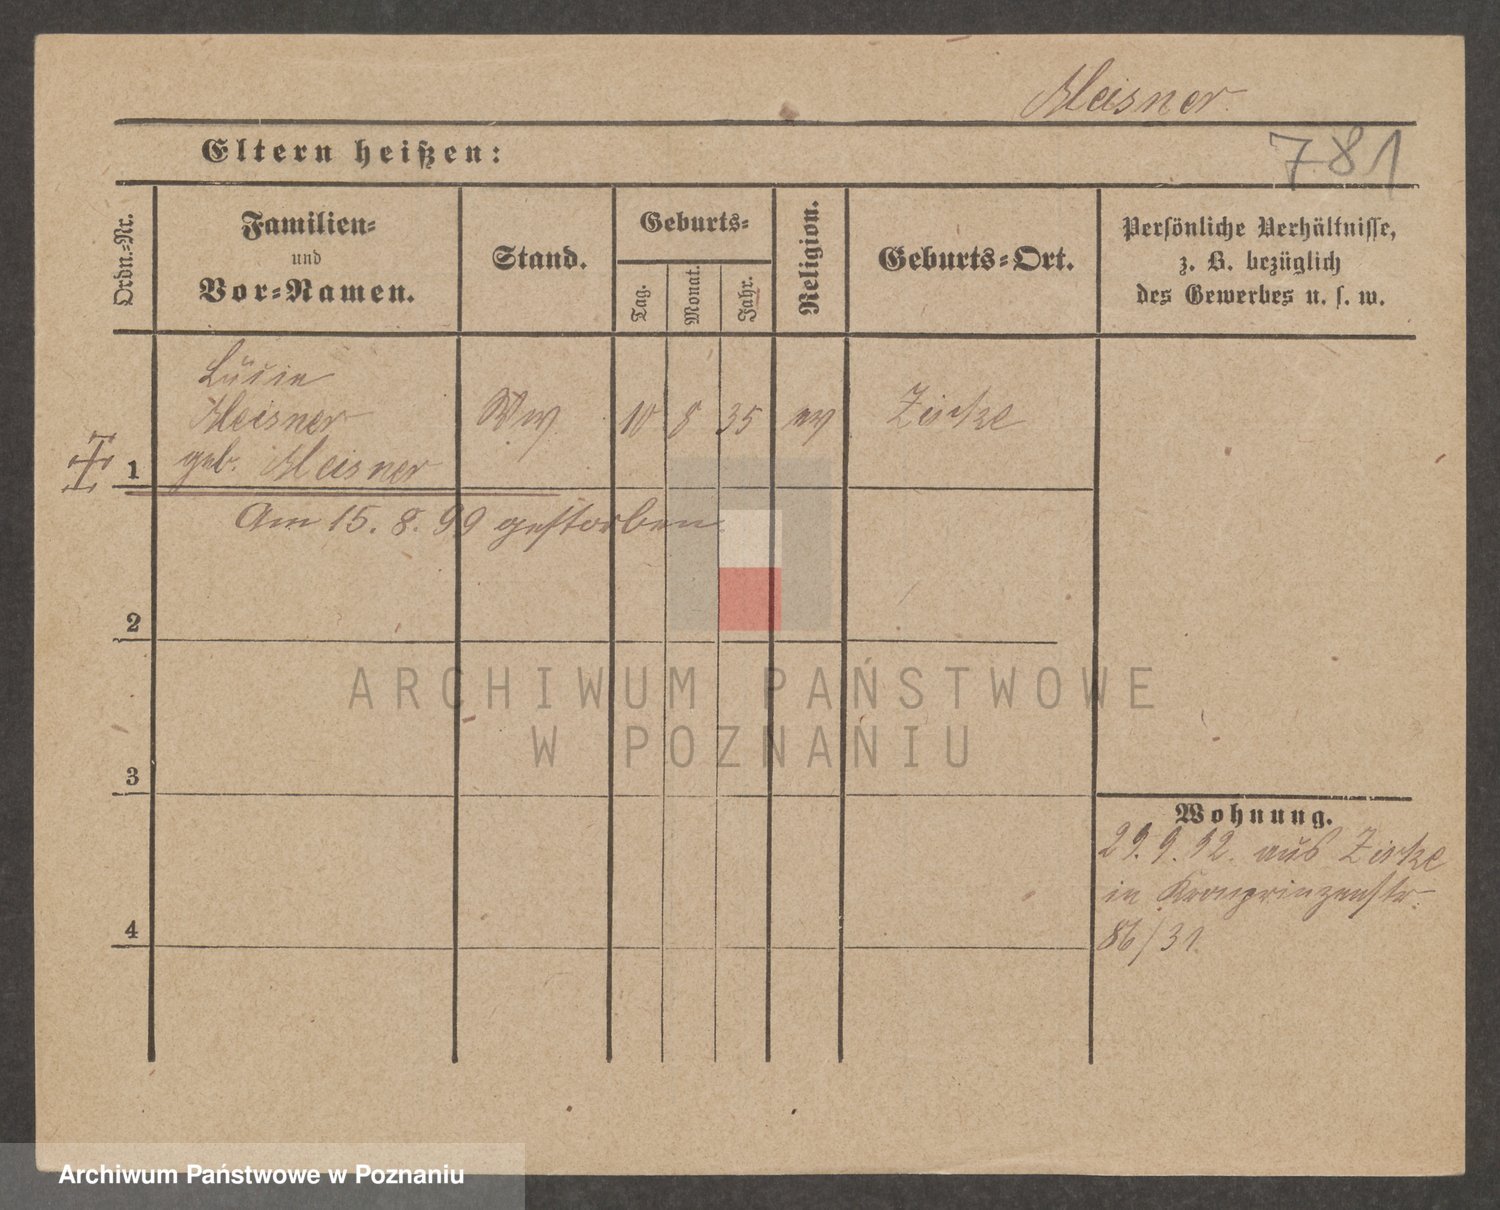 Meisner
781
Eltern heißen:
Ordn.-Nr.
Familien- und Vor-Namen.
Stand.
Geburts-
Tag.
Monat.
Jahr.
Religion.
Geburts-Ort.
Persönliche Verhältnisse,
z. B. bezüglich
des Gewerbes u. s. w.
Meisner
geb. Meisner
1
Ww
10
8
35
ev
Zirke
Am 15. 8. 99 gestorben.
2
3
4
Wohnung.
29. 9. 92. aus Zirke
in Kronprinzenstr.
86/31.
ARCHIWUM PAŃSTWOWE
W POZNANIU
Archiwum Państwowe w Poznaniu